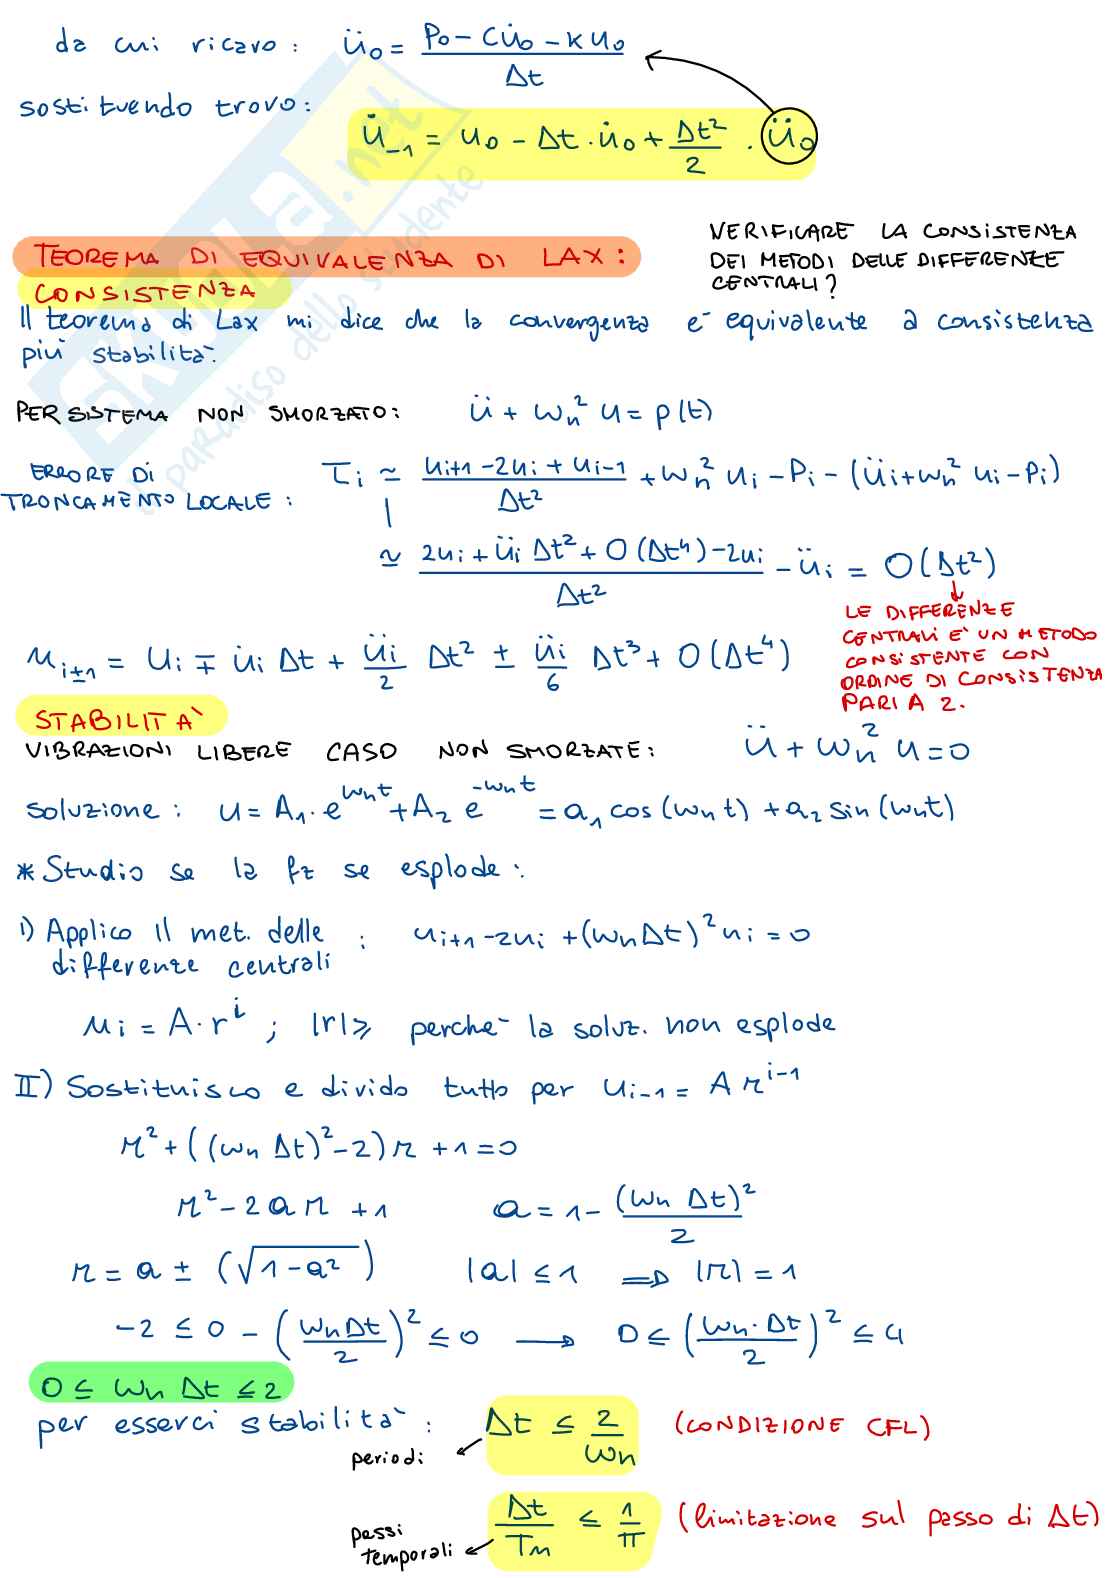 da cui ricavo: ü₀ = (P₀ - Cu̇₀ - K u₀) / Δt
sostituendo trovo:
u̇₋₁ = u₀ - Δt · u̇₀ + Δt²/2 · ü₀
TEOREMA DI EQUIVALENZA DI LAX:
CONSISTENZA
VERIFICARE LA CONSISTENZA
DEI METODI DELLE DIFFERENZE
CENTRALI?
Il teorema di Lax mi dice che la convergenza è equivalente a consistenza
più stabilità.
PER SISTEMA NON SMORZATO: ü + ωn² u = p(t)
ERRORE DI
TRONCAMENTO LOCALE:
τi ≃ (ui+1 - 2ui + ui-1) / Δt² + ωn² ui - Pi - (üi + ωn² ui - Pi)
≃ (2ui + üi Δt² + O(Δt⁴) - 2ui) / Δt² - üi = O(Δt²)
LE DIFFERENZE
CENTRALI E' UN METODO
CONSISTENTE CON
ORDINE DI CONSISTENZA
PARI A 2.
ui±1 = ui ∓ u̇i Δt + üi/2 Δt² ± üi/6 Δt³ + O(Δt⁴)
STABILITA'
VIBRAZIONI LIBERE CASO NON SMORZATE: ü + ωn² u = 0
soluzione: u = A₁ · e^(ωnt) + A₂ e^(-ωnt) = a₁ cos(ωn t) + a₂ sin(ωnt)
* Studio se la fz se esplode:
I) Applico il met. delle
differenze centrali
: ui+1 - 2ui + (ωnΔt)² ui = 0
ui = A · r^i ; |r| ⩾ perché la soluz. non esplode
II) Sostituisco e divido tutto per ui-1 = A r^(i-1)
r² + ((ωn Δt)² - 2) r + 1 = 0
r² - 2 a r + 1 a = 1 - (ωn Δt)²/2
r = a ± (√(1 - a²)) |a| ≤ 1 ⇒ |r| = 1
-2 ≤ 0 - (ωnΔt/2)² ≤ 0 → 0 ≤ (ωn · Δt/2)² ≤ 4
0 ≤ ωn Δt ≤ 2
per esserci stabilità: Δt ≤ 2/ωn (CONDIZIONE CFL)
periodi
Δt/Tn ≤ 1/π (limitazione sul passo di Δt)
passi
temporali
skuola.net
il paradiso dello studente